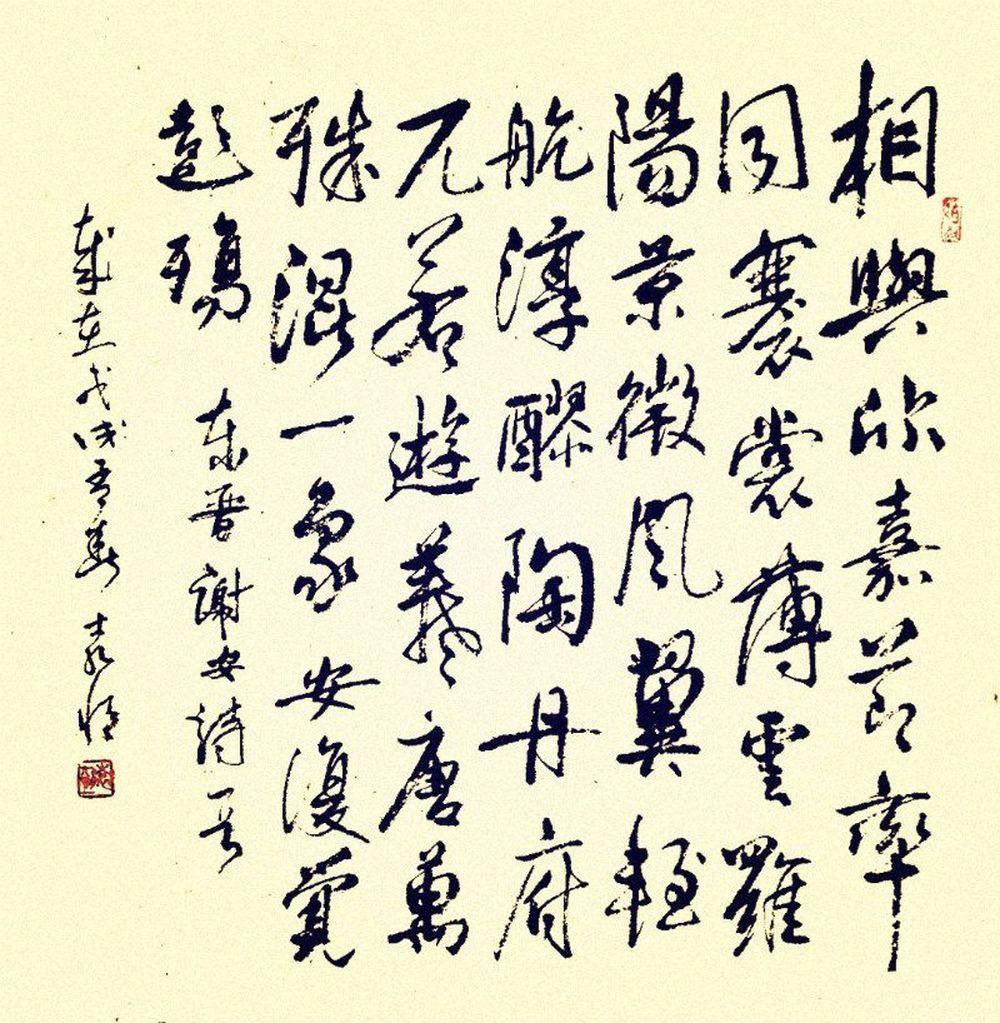 相與欣嘉節率
同褰裳薄雲羅
陽景微風翼輕
航淳醪陶丹府
兀若遊羲唐萬
殊混一象安復覺
彭殤 東晉謝安詩一首
歲在戊戌春 袁